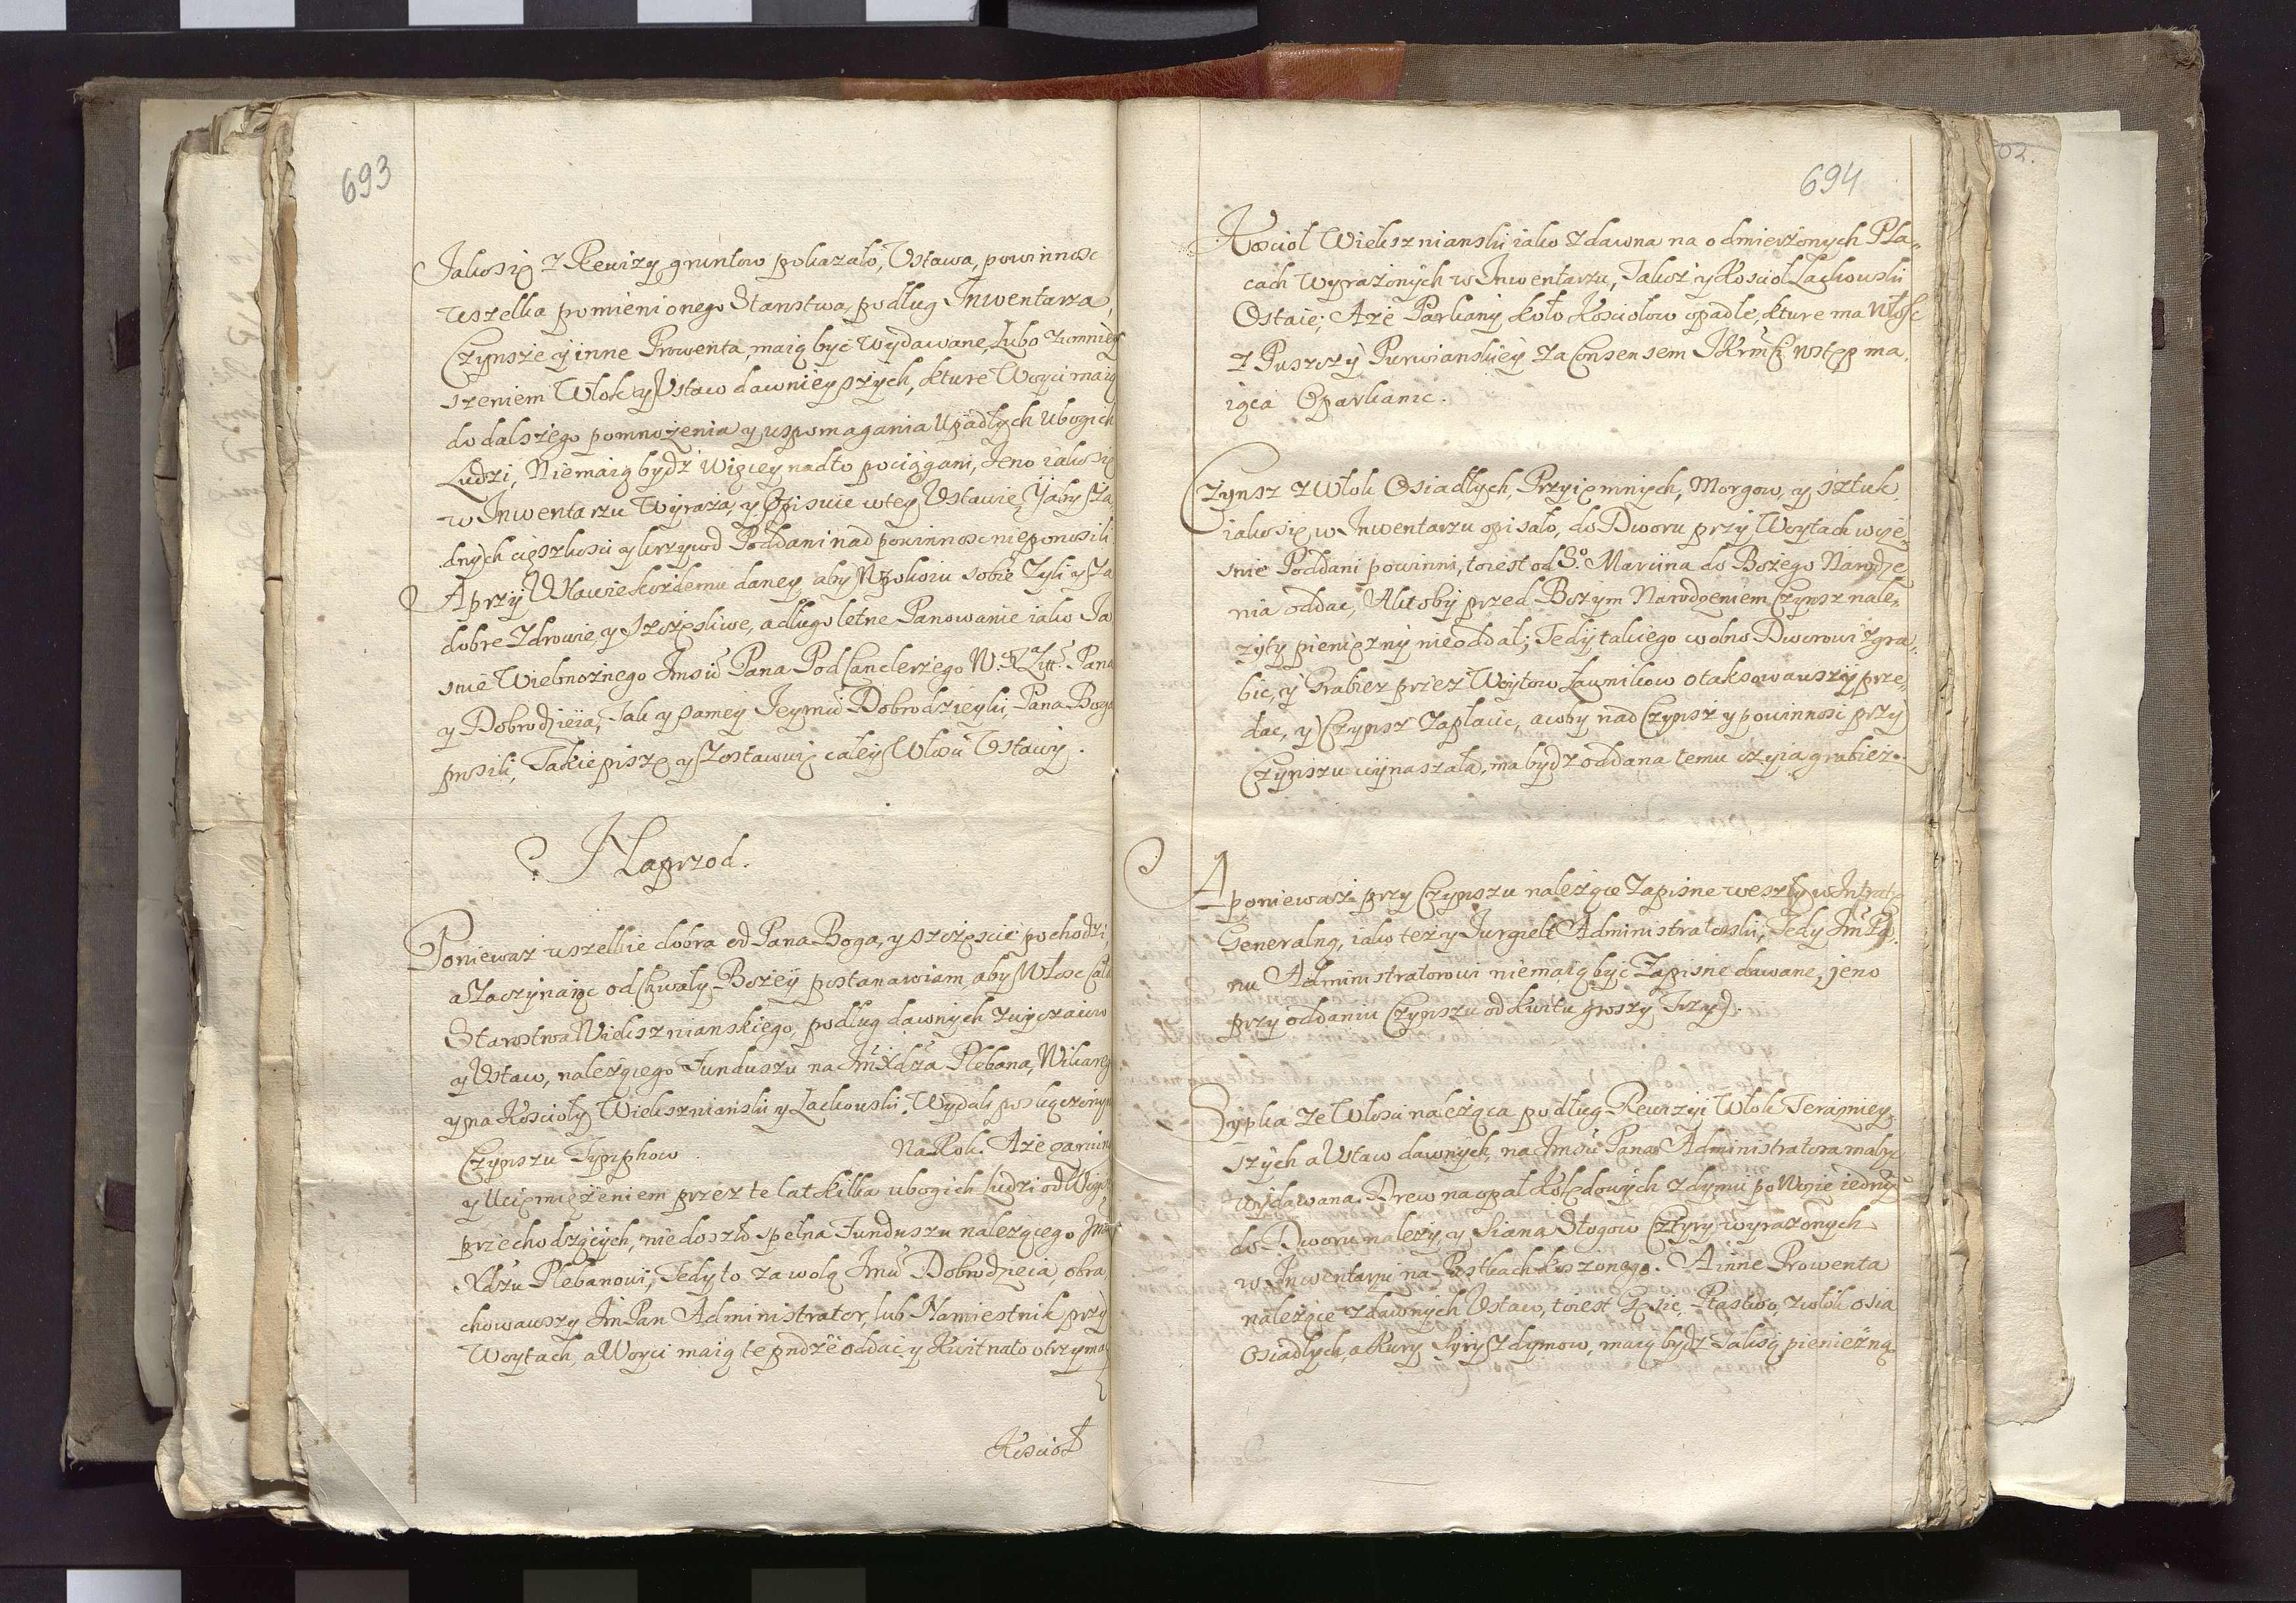 693
Jako się z Rewizÿ gruntow pokazało, Ustawa, powinnosc
wszelka pomienionego Starstwa, podług Inwentarza,
Czynsze ÿ inne Prowenta, maią być wÿdawane, Lubo zomniey
szeniem Włok y Ustaw dawnieyszÿch, kture Woyci maią
do dalszego pomnożenia y uspomagania upadłych ubogich
Ludzi, Niemaią bydź więcey nadto pociągani, Jeno iako się
w Inwentarzu Wyraża, y Opisuie w tey Ustawie, Yaby Ża
dnych cięszkosci y krzywod Poddani nad powinnosc nieponosili
A przÿ Ustawie kożdemu daney, aby w pokoiu sobie Zyli y Za
dobre Zdrowie, y Szczęsliwe, a długo letne Panowanie iako Ja
snie Wielmożnego Imsci Pana Pod Canclerzego W. X. Litt. Pana
y Dobrodzieia, Tak y samey Jeymci Dobrodzieyki, Pana Boga
prosili, Takie piszę y Zostawuię całey Włosci Ustawÿ.
Naprzod.
Poniewaz wszelkie dobra od Pana Boga, y szczęscie pochodzi,
a Zaczynaiąc od Chwały Bożeÿ postanawiam, aby Włosc cała
Starostwa Wieksznianskiego, podług dawnych zwyczaiow
y Ustaw, należącego Funduszu na Jmc Xdza Plebana, Wikarego
y na Koscioły Wiekszniański y Lackowski. Wydali poslączonym
Czynszu Tynphow . Na Rok. Aże
y uciemiężeniem przez te lat kilka ubogich Ludzi od Woysk
przechodzących, nie doszło spełna Funduszu należącego Jmc
Xdzu Plebanowi, Tedy to za wolą Jmci Dobrodzieia, obra
chowawszy Jm Pan Administrator, lub Namiestnik przÿ
Woytach, a Woyci maią te pndze oddać y Kwit na to otrzyma
Kosciół
694
Kosciol Wiekszniański iako z dawna na odmierżonych Pla„
cach wyrażonych w Inwentarzu, Takż y Kosciół Lackowski
Ostaie; Aże Parkany koło Kosciołow opadłe, kture ma Włosc
z Puszczÿ Purwianskieÿ za Consensem wstęp ma„
iąca Oparkanic.
Czynsz z Włok Osiadłych, Przyięmnÿch, Morgow, y sztuk
iako się w Inwentarzu opisało, do Dworu przÿ Woytach wcze„
snie Poddani powinni, to iest od S° Marcina do Bożego Narodze
nia oddac, A ktoby przed Bożym Narodzeniem Czynsz nale„
żyty pieniężnÿ nieoddał; Tedÿ takiego wolno Dworowi zgra„
bic, ÿ Grabiez przez Woytow Ławnikow otaksowawszÿ prze„
dac, ÿ Czynsz Zapłacic, a coby nad Czynsz y powinnosc przy
Czynszu wÿnaszała, ma bydz oddana temu czyia grabież.
A poniewaz przy Czynszu należące Zapisne weszły w Intratę
Generalną, iako też y Jurgielt Administratorski, Tedy Jmc Pa„
nu Administratorowi niemaią być Zapisne dawane, jeno
przy oddaniu Czynszu od kwitu groszy Trzy.
Sypka ze Włosci należąca podług Rewizyi Włok Teraznieÿ„
szych a Ustaw dawnych, na Imsci Pana Administratora ma być
wydawana. Drew na opał Kolędowych z dymu po Wozie iednÿ
do Dworu należy, y Siana Stogow Cztyry wyrażonych
w Inwentarzu na Pustkach koszonego. A inne Prowenta
należące z dawnych Ustaw, to iest Gęsie, Ptastwo, z włok osia
osiadłych, a kury Syry z dymow, maią bydź Taksą pieniężną